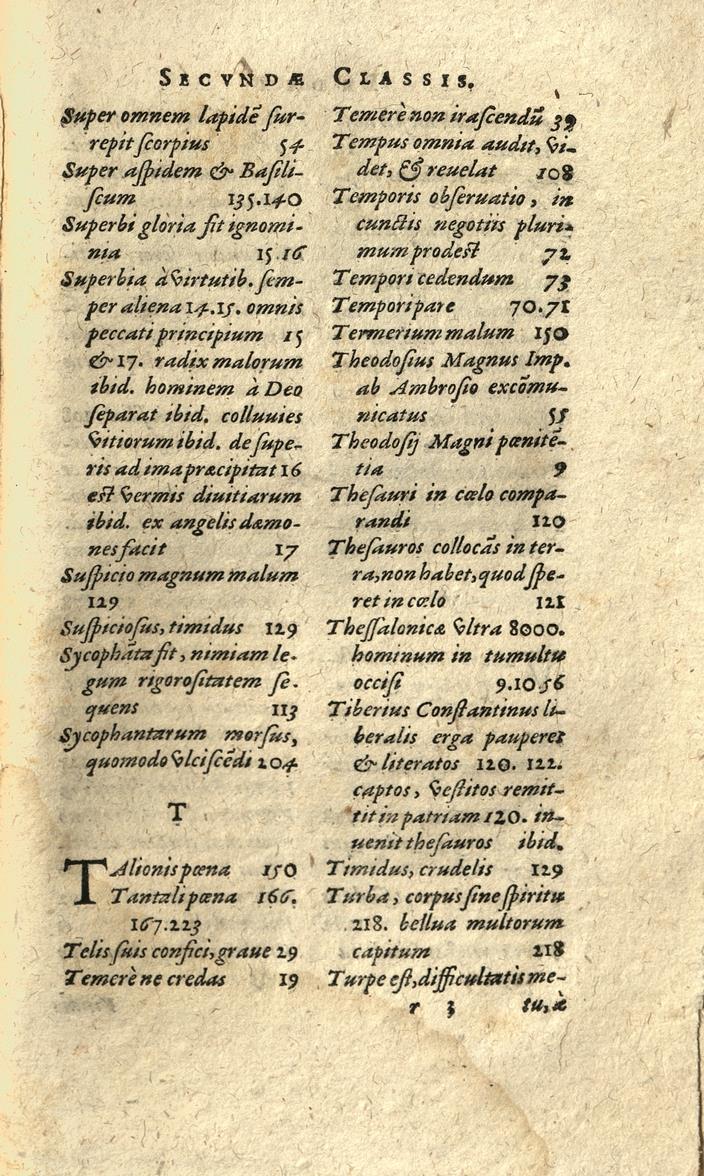 SECVNDÆ CLASSIS.
Super omnem lapidē ſur-
repit ſcorpius 54
Super aſpidem & Baſili-
ſcum 135.140
Superbi gloria fit ignomi-
nia 15.16
Superbia à virtutib. ſem-
per aliena 14.15. omnis
peccati principium 15
& 17. radix malorum
ibid. hominem à Deo
ſeparat ibid. colluuies
vitiorum ibid. de ſupe-
ris ad ima præcipitat 16
est vermis diuitiarum
ibid. ex angelis dæmo-
nes facit 17
Suſpicio magnum malum
129
Suſpicioſus, timidus 129
Sycophāta fit, nimiam le-
gum rigoroſitatem ſe-
quens 113
Sycophantarum morſus,
quomodo vlciſcēdi 204
T
TAlionis pœna 150
Tantali pœna 166.
167.223
Telis ſuis confici, graue 29
Temerè ne credas 19
Temerè non iraſcendū 39
Tempus omnia audit, vi-
det, & reuelat 108
Temporis obſeruatio, in
cunctis negotiis pluri-
mum prodest 72
Tempori cedendum 73
Tempori pare 70.71
Termerium malum 150
Theodoſius Magnus Imp.
ab Ambroſio excōmu-
nicatus 55
Theodoſij Magni pœnitē-
tia 9
Theſauri in cœlo compa-
randi 120
Theſauros collocās in ter-
ra, non habet, quod ſpe-
ret in cœlo 121
Theſſalonicæ vltra 8000.
hominum in tumultu
occiſi 9.10.56
Tiberius Conſtantinus li-
beralis erga pauperes
& literatos 120. 122.
captos, veſtitos remit-
tit in patriam 120. in-
uenit theſauros ibid.
Timidus, crudelis 129
Turba, corpus ſine ſpiritu
218. bellua multorum
capitum 218
Turpe eſt, difficultatis me-
r 3 tu, à